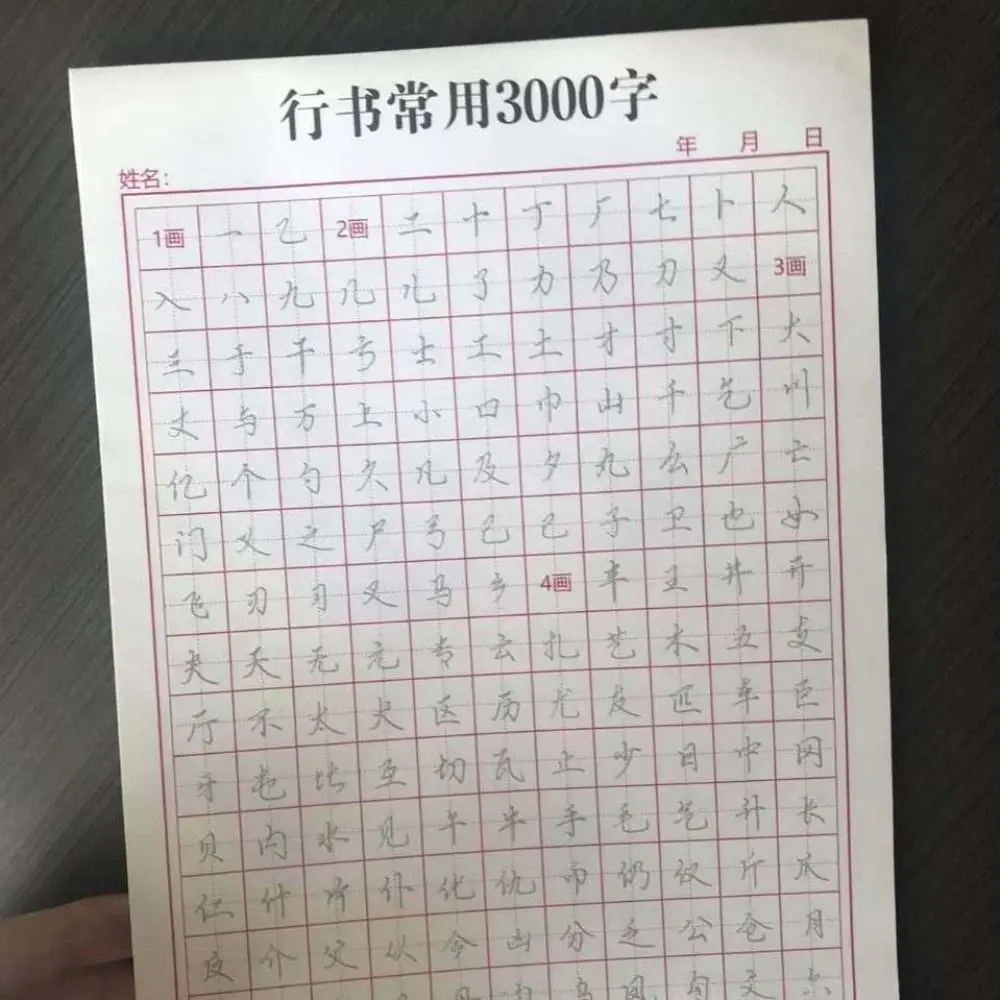 行书常用3000字
年 月 日
姓名:
1画 一 乙 2画 二 十 丁 厂 七 卜 人
入 八 九 几 儿 了 力 乃 刀 又 3画
三 于 干 亏 士 工 土 才 寸 下 大
丈 与 万 上 小 口 巾 山 千 乞 川
亿 个 勺 久 凡 及 夕 丸 么 广 亡
门 义 之 尸 弓 己 已 子 卫 也 女
飞 刃 习 叉 马 乡 4画 丰 王 井 开
夫 天 无 元 专 云 扎 艺 木 五 支
厅 不 太 犬 区 历 尤 友 匹 车 巨
牙 屯 比 互 切 瓦 止 少 日 中 冈
贝 内 水 见 午 牛 手 毛 气 升 长
仁 什 片 仆 化 仇 币 仍 仅 斤 爪
反 介 父 从 今 凶 分 乏 公 仓 月